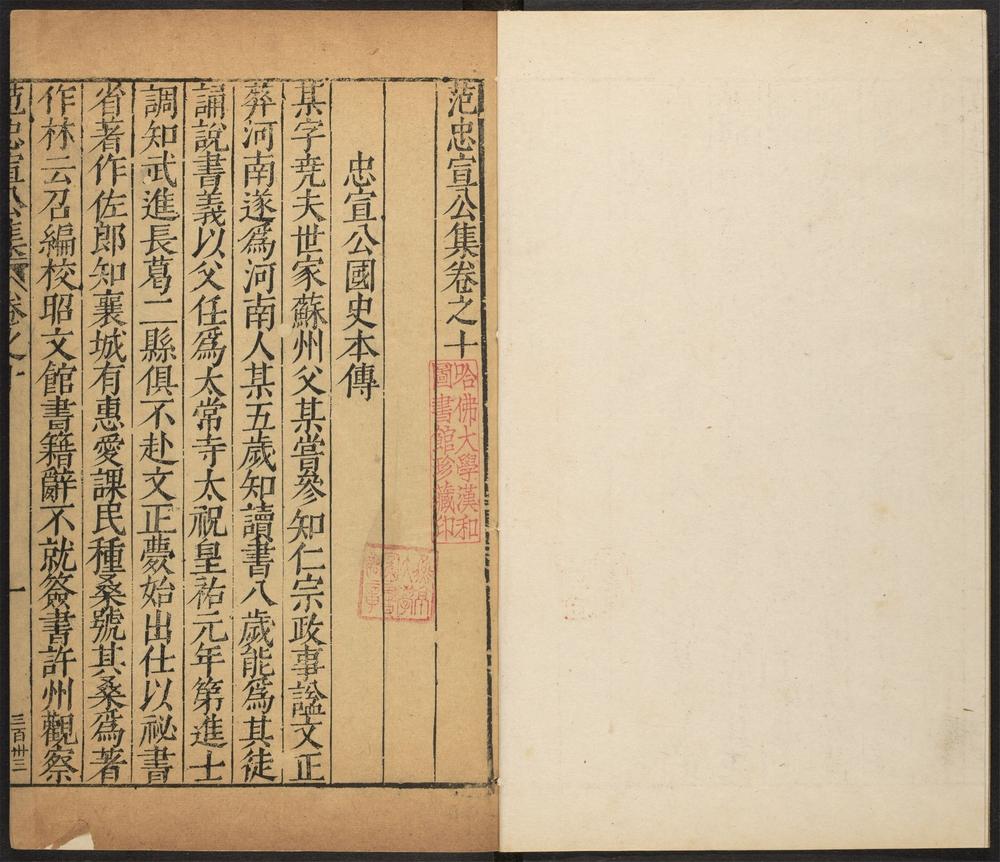 范忠宣公集卷之十
忠宣公國史本傳
某字尭夫世家蘇州父某嘗參知仁宗政事謚文正
葬河南遂爲河南人某五歲知讀書八歲能爲其徒
誦說書義以父任爲太常寺太祝皇祐元年第進士
調知武進長葛二縣俱不赴文正薨始出仕以祕書
省著作佐郎知襄城有惠愛課民種桑號其桑爲著
作林云召編校昭文館書籍辭不就簽書許州觀察
范忠宣公集
卷之十
一
三百卅三
哈佛大學漢和
圖書館珍藏印